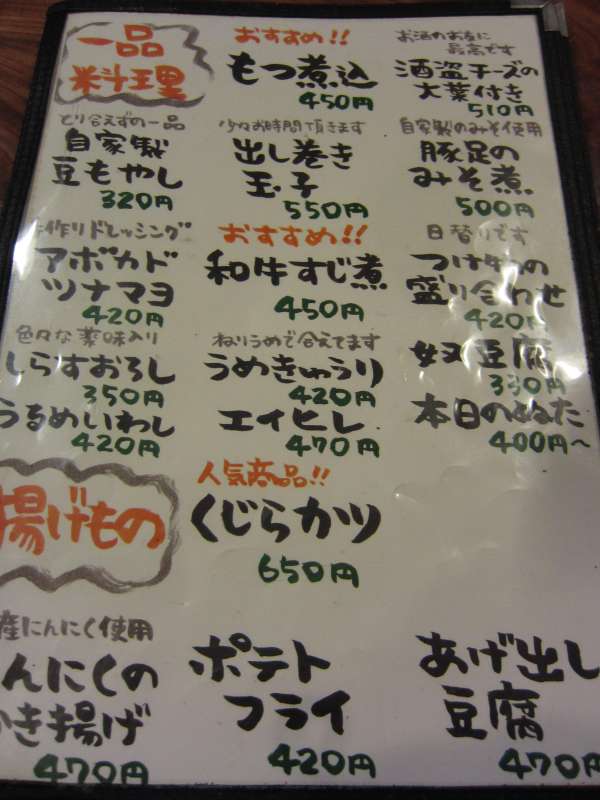 一品
料理
おすすめ!!
もつ煮込
450円
お酒のお友に
最高です
酒盗チーズの
大葉付き
510円
とり合えずの一品
自家製
豆もやし
320円
少々お時間頂きます
出し巻き
玉子
550円
自家製のみそ使用
豚足の
みそ煮
500円
作りドレッシング
アボカド
ツナマヨ
420円
おすすめ!!
和牛すじ煮
450円
日替りです
つけ物の
盛り合わせ
420円
色々な薬味入り
しらすおろし
350円
うるめいわし
420円
ねりうめで合えてます
うめきゅうり
420円
エイヒレ
470円
奴豆腐
330円
本日のぬた
400円~
揚げもの
人気商品!!
くじらカツ
650円
産にんにく使用
んにくの
き揚げ
470円
ポテト
フライ
420円
あげ出し
豆腐
470円